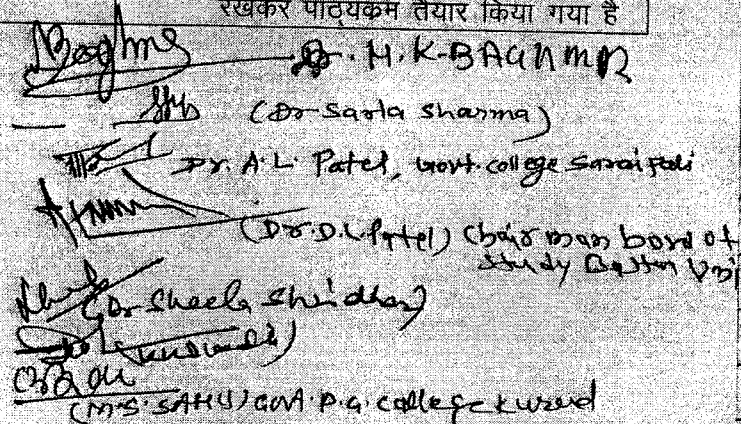 रखकर पाठ्यक्रम तैयार किया गया है
Dr. H.K-BAGHMAR
(Dr Sarla Sharma)
Dr. A.L. Patel, Govt. college Saraipali
(Dr. D.L. Patel) Chairman bord of
study Bastar Uni
(Dr Sheela Shridhar)
(M.S. SAHU) Govt. P.G. college kurud